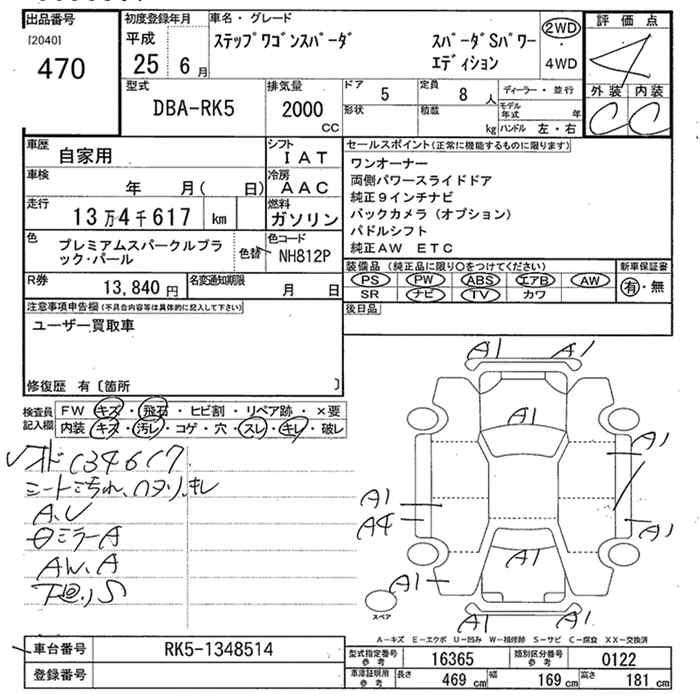 出品番号
[2040]
470
初度登録年月
平成
25 6月
車名・グレード
ステップワゴンスパーダ スパーダSパワー
エディション
2WD
・
4WD
評価点
4
外装 内装
C C
型式
DBA-RK5
排気量
2000
CC
ドア 5
定員 8人
ディーラー・並行
形状
積載 kg
モデル年式 年
ハンドル 左・右
車歴
自家用
シフト
IAT
車検
年 月( 日)
冷房
AAC
走行
13万4千617 km
燃料
ガソリン
色
プレミアムスパークルブラ
ック・パール
色替
色コード
NH812P
R券
13,840 円
名変通知期限
月 日
セールスポイント(正常に機能するものに限ります)
ワンオーナー
両側パワースライドドア
純正9インチナビ
バックカメラ(オプション)
パドルシフト
純正AW ETC
装備品(純正品に限り○をつけてください)
PS PW ABS エアB AW
SR ナビ TV カワ
新車保証書
有・無
後日品
注意事項申告欄(不具合内容等は具体的に記入して下さい)
ユーザー買取車
修復歴 有〔箇所 〕
検査員
記入欄
FW キズ・飛石・ヒビ割・リペア跡・×要
内装 キズ・汚レ・コゲ・穴・スレ・キレ・破レ
134617
シートよごれ、
A,U
ミラーA
AW,A
下回りS
A1 A1
A1
A1
A1
A4
A1
A1
A1
A1 A1
スペア
A-キズ E-エクボ U-凹み W-補修跡 S-サビ C-腐食 XX-交換済
車台番号
RK5-1348514
登録番号
型式指定番号
参考
16365
類別区分番号
参考
0122
車庫証明用
参考
長さ 469 cm
幅 169 cm
高さ 181 cm